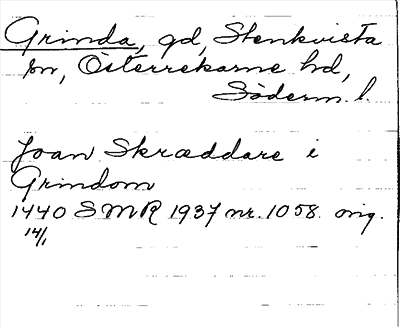 Grinda, gd, Stenkvista
sn, Österrekarne hd,
Söderm. l.
Joan Skræddare i
Grindom
1440 SMR 1937 nr. 1058. orig.
14/1